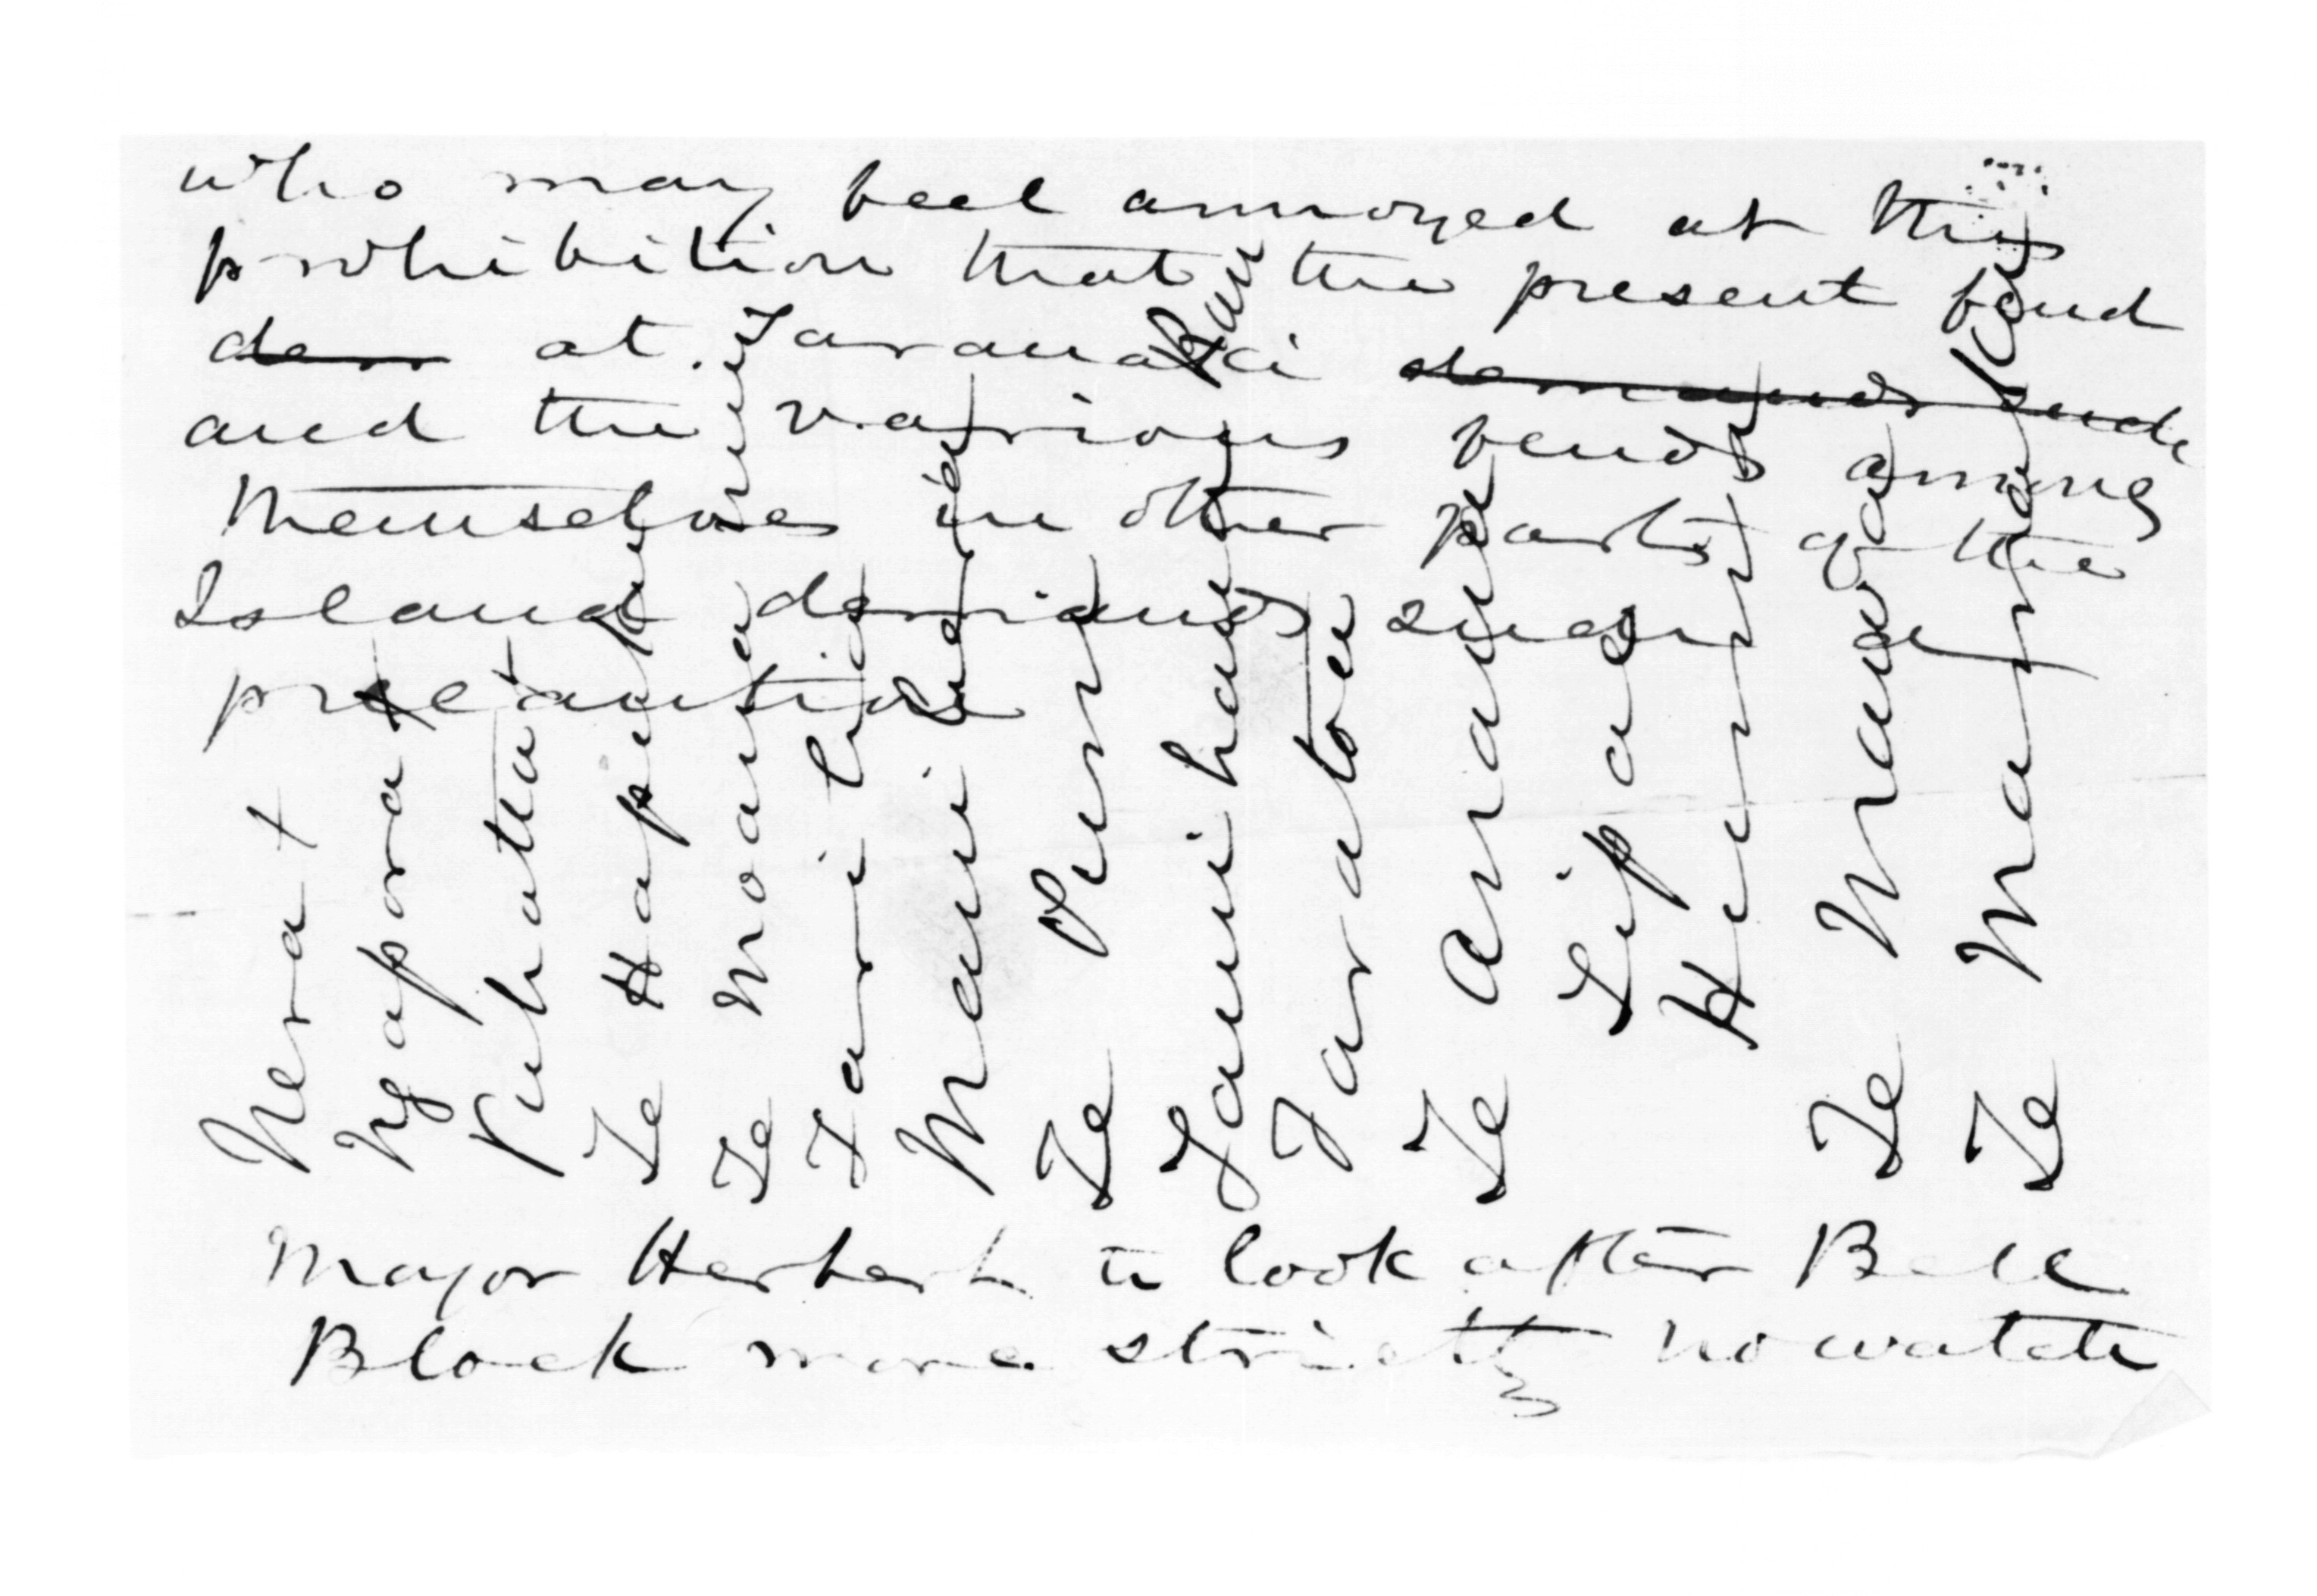 who may feel annoyed at this
prohibition that the present feud
at Taranaki
and the various feuds among
themselves in other parts of the
Island demands such
precaution
Nera +
Ngapora +
Puhata +
Te Hapuku
Te Moana
Tarihia
Maui
Te Puni
Tamihana
Taratoa
Te
Tipae
Henri
Te Mawae
Te
Major Herbert to look after Bell
Block more strictly no watch